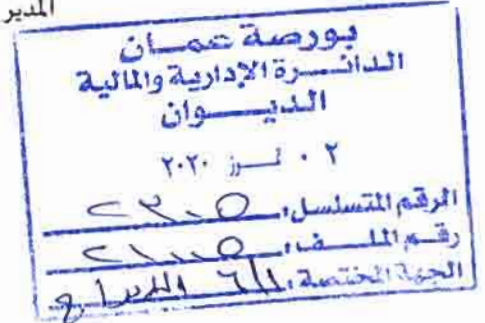 المدير
بورصة عمان
الدائرة الإدارية والمالية
الديوان
٠٢ تموز ٢٠٢٠
الرقم المتسلسل: ٢٣٠٥
رقم الملف: ٢١٠٠٥
الجهة المختصة: